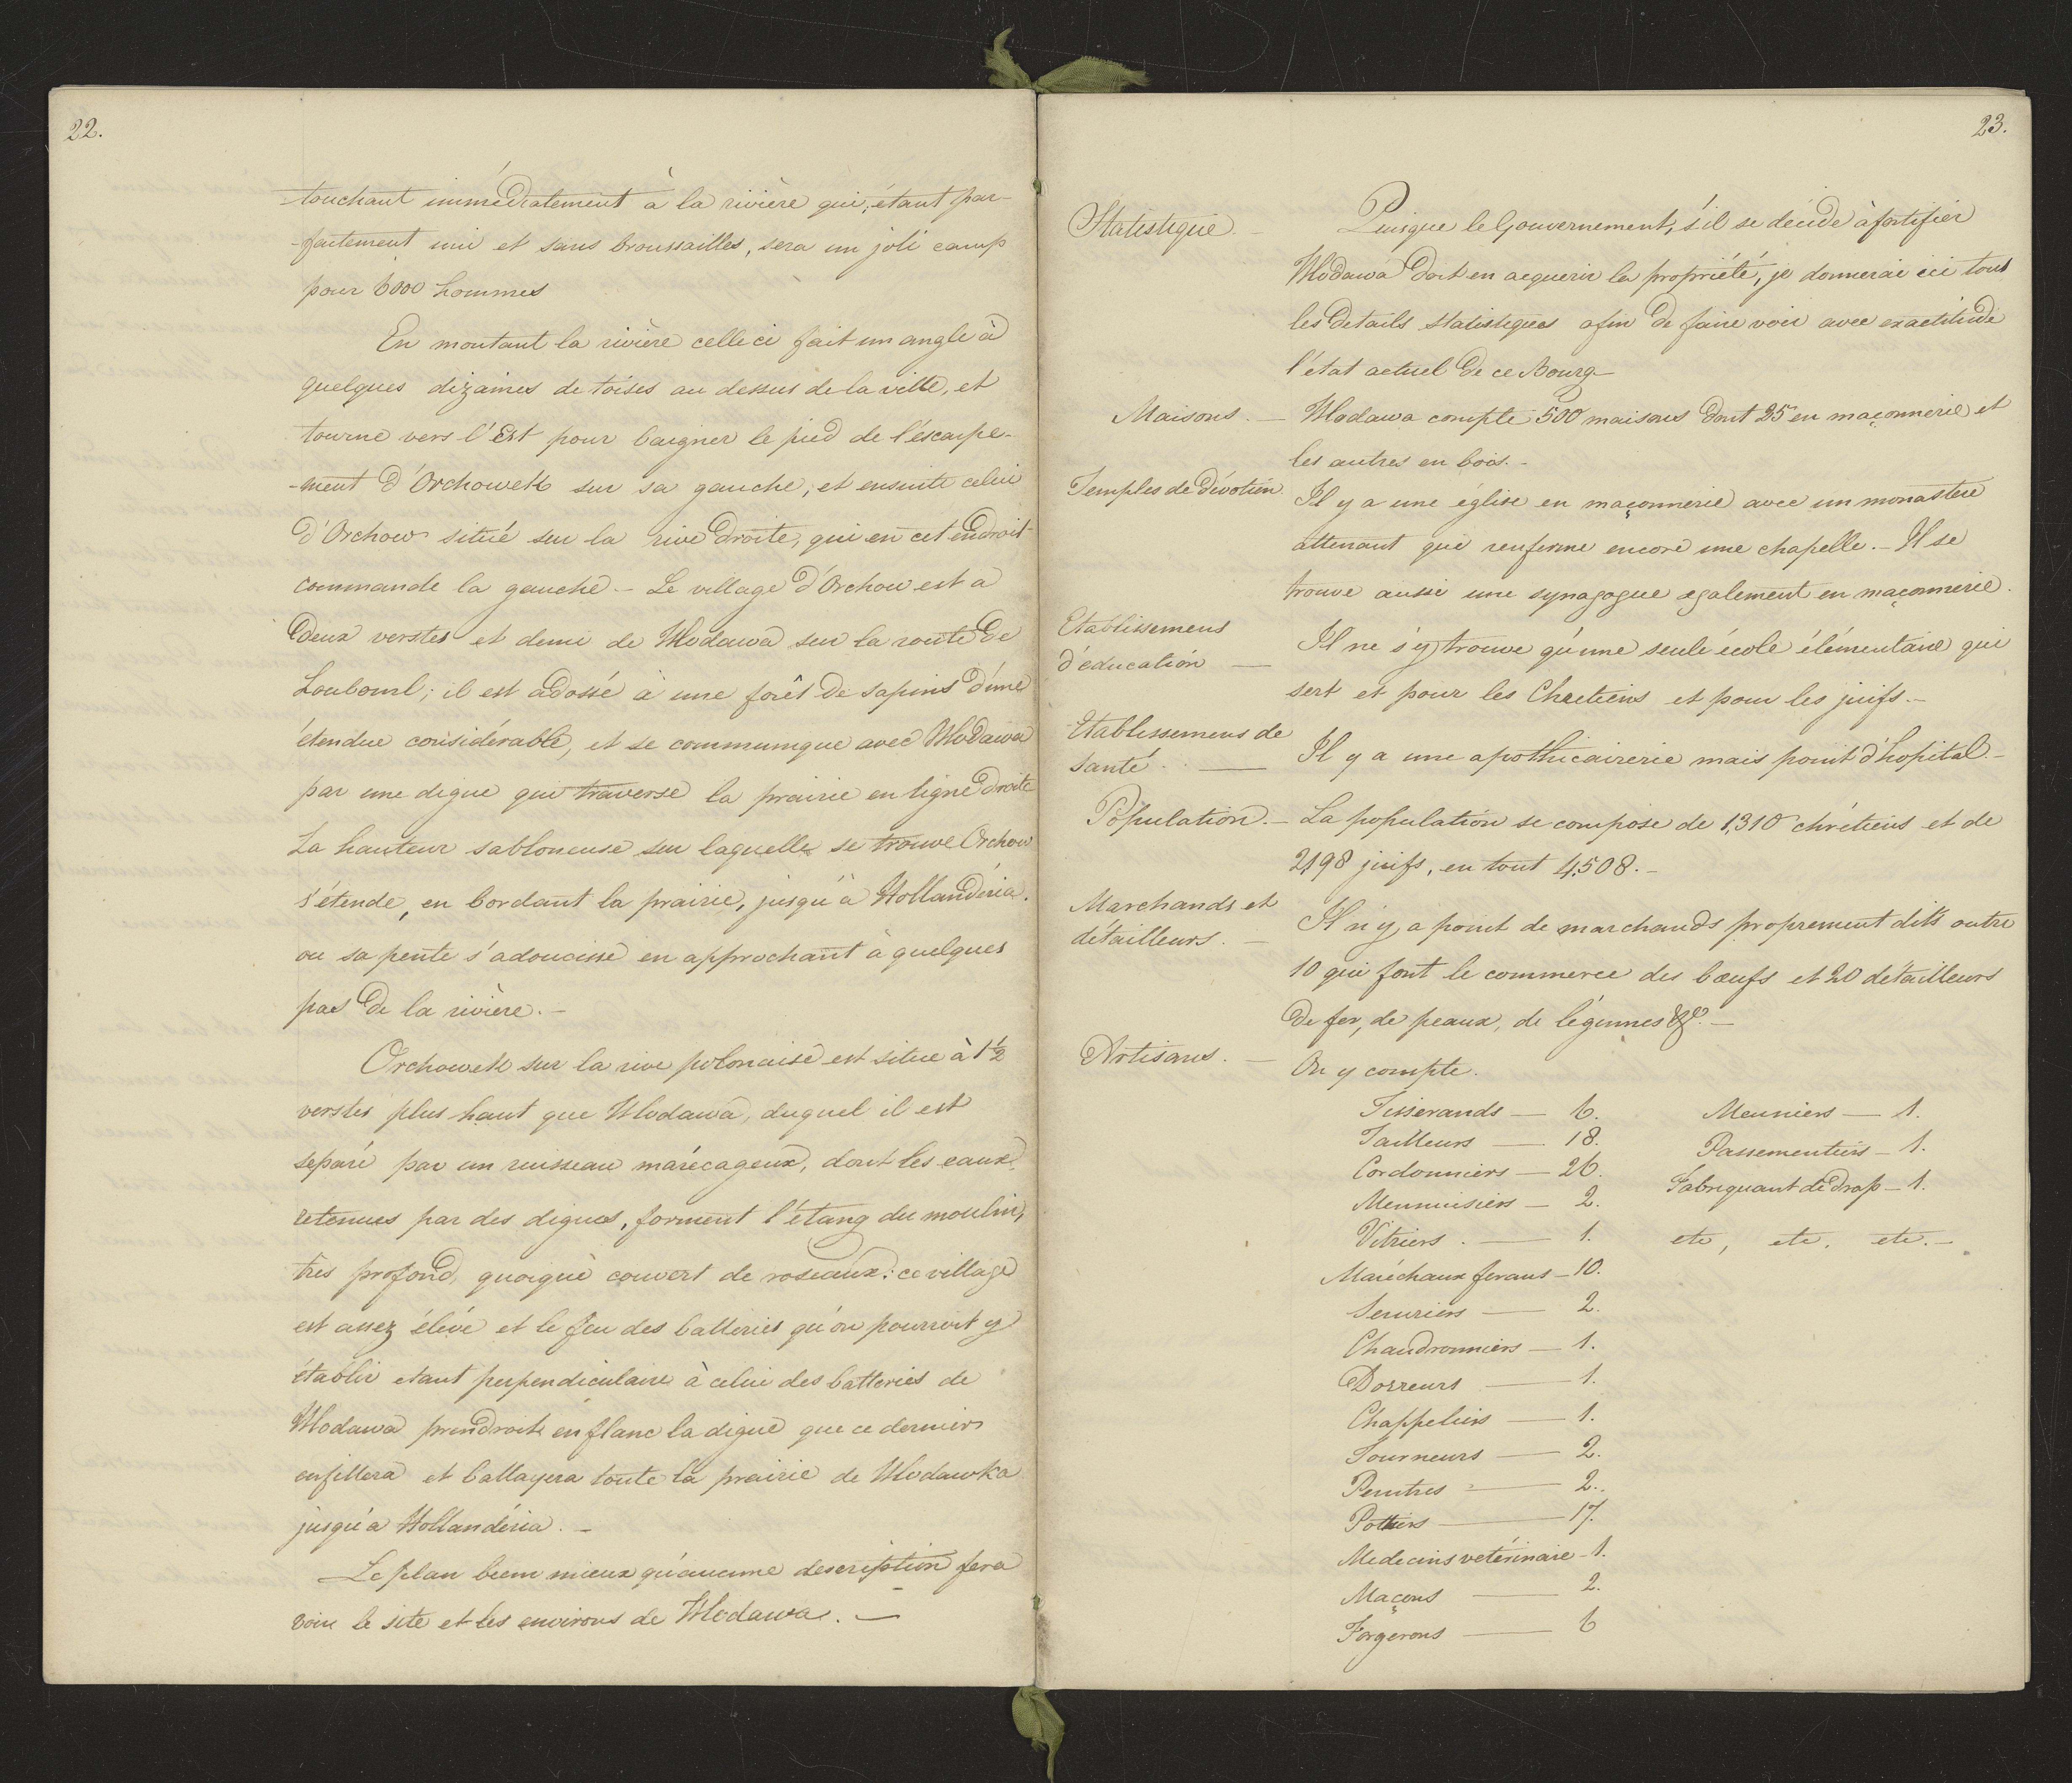 22.
touchant immédiatement à la rivière qui, étant par-
-faitement uni et sans broussailles, sera un joli camp
pour 6000 hommes
En montant la rivière celle ci fait un angle à
quelques dizaines de toises au dessus de la ville, et
tourne vers l'Est pour baigner le pied de l'escarpe-
-ment d'Orchowek sur sa gauche, et ensuite celui
d'Orchow situé sur la rive droite, qui en cet endroit
commande la gauche. – Le village d'Orchow est a
deux verstes et demi de Wlodawa sur la route de
Louboml; il est adossé à une forêt de sapins d'une
étendue considérable, et se communique avec Wlodawa
par une digue qui traverse la prairie en ligne droite
La hauteur sabloneuse sur laquelle se trouve Orchow
s'étende, en bordant la prairie, jusqu'à Hollandéria.
ou sa pente s'adoucisse en approchant à quelques
pas de la rivière. –
Orchowek sur la rive polonaise est situé à 1½
verstes plus haut que Wlodawa, duquel il est
séparé par un ruisseau marécageux, dont les eaux,
retenues par des digues, forment l'étang du moulin,
très profond, quoique couvert de roseaux: ce village
est assez élévé et le feu des batteries qu'on pourroit y
établir etant perpendiculaire à celui des batteries de
Wlodawa prendroit en flanc la digue que ce dernier
enfillera et ballayera toute la prairie de Wlodawka
jusqu'a Hollandéria. –
Le plan bien mieux qu'aucune description fera
voir le site et les environs de Wlodawa. –
23.
Statistique. – Puisque le Gouvernement, s'il se décide à fortifier
Wlodawa doit en acquerir la propriété, je donnerai ici tous
les details statistiques afin de faire voir avec exactitude
l'état actuel de ce Bourg –
Maisons. – Wlodawa compte 500 maisons dont 25 en maçonnerie et
les autres en bois. –
Temples de dévotion. Il y a une église en maçonnerie avec un monastere
attenant qui renferme encore une chapelle. – Il se
trouve aussi une synagogue egalement en maçonnerie.
Etablissemens
d'éducation — Il ne s'y trouve qu'une seule école élémentaire qui
sert et pour les Chretiens et pour les juifs. –
Etablissemens de
santé. — Il y a une apothicairerie mais point d'hopital. –
Population. – La population se compose de 1,310 chrétiens et de
2198 juifs, en tout 4,508. –
Marchands et
détailleurs. – Il n'y a point de marchands proprement dits outre
10 qui font le commerce des bœufs et 20 détailleurs
de fer, de peaux, de légumes &c. –
Artisans. – On y compte.
Tisserands — 6.
Tailleurs — 18.
Cordonniers — 26.
Menuisiers — 2.
Vitriers. — 1.
Maréchaux ferans – 10.
Seruriers — 2.
Chaudronniers — 1.
Dorreurs — 1.
Chappeliers — 1.
Tourneurs — 2.
Peintres — 2.
Pottiers — 17.
Medecins vetérinaire – 1.
Maçons — 2.
Forgerons — 6
Meuniers — 1.
Passementiers – 1.
Fabriquant de drap – 1.
etc, etc. etc. –